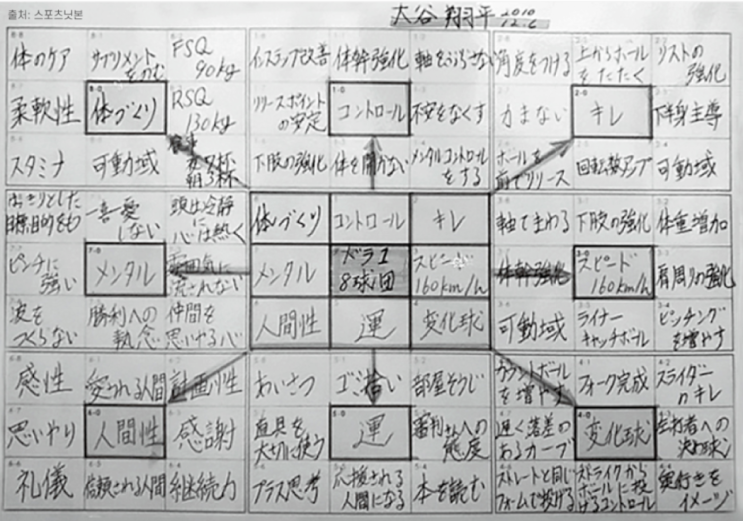 출처: 스포츠닛본
大谷 翔平 2010 12.6
体のケア サプリメントをのむ FSQ 90kg インステップ改善 体幹強化 軸をぶらさない 角度をつける 上からボールをたたく リストの強化
柔軟性 体づくり RSQ 130kg リリースポイントの安定 コントロール 不安をなくす 力まない キレ 下半身主導
スタミナ 可動域 食事 夜7杯 朝3杯 下肢の強化 体を開かない メンタルコントロールをする ボールを前でリリース 回転数アップ 可動域
はっきりとした目標、目的をもつ 一喜一憂しない 頭は冷静に心は熱く 体づくり コントロール キレ 軸でまわる 下肢の強化 体重増加
ピンチに強い メンタル 雰囲気に流されない メンタル ドラ1 8球団 スピード 160km/h 体幹強化 スピード 160km/h 肩周りの強化
波をつくらない 勝利への執念 仲間を思いやる心 人間性 運 変化球 可動域 ライナーキャッチボール ピッチングを増やす
感性 愛される人間 計画性 あいさつ ゴミ拾い 部屋そうじ カウントボールを増やす フォーク完成 スライダーのキレ
思いやり 人間性 感謝 道具を大切に使う 運 審判さんへの態度 遅く落差のあるカーブ 変化球 左打者への決め球
礼儀 信頼される人間 継続力 プラス思考 応援される人間になる 本を読む ストレートと同じフォームで投げる ストライクからボールに投げるコントロール 奥行きをイメージ